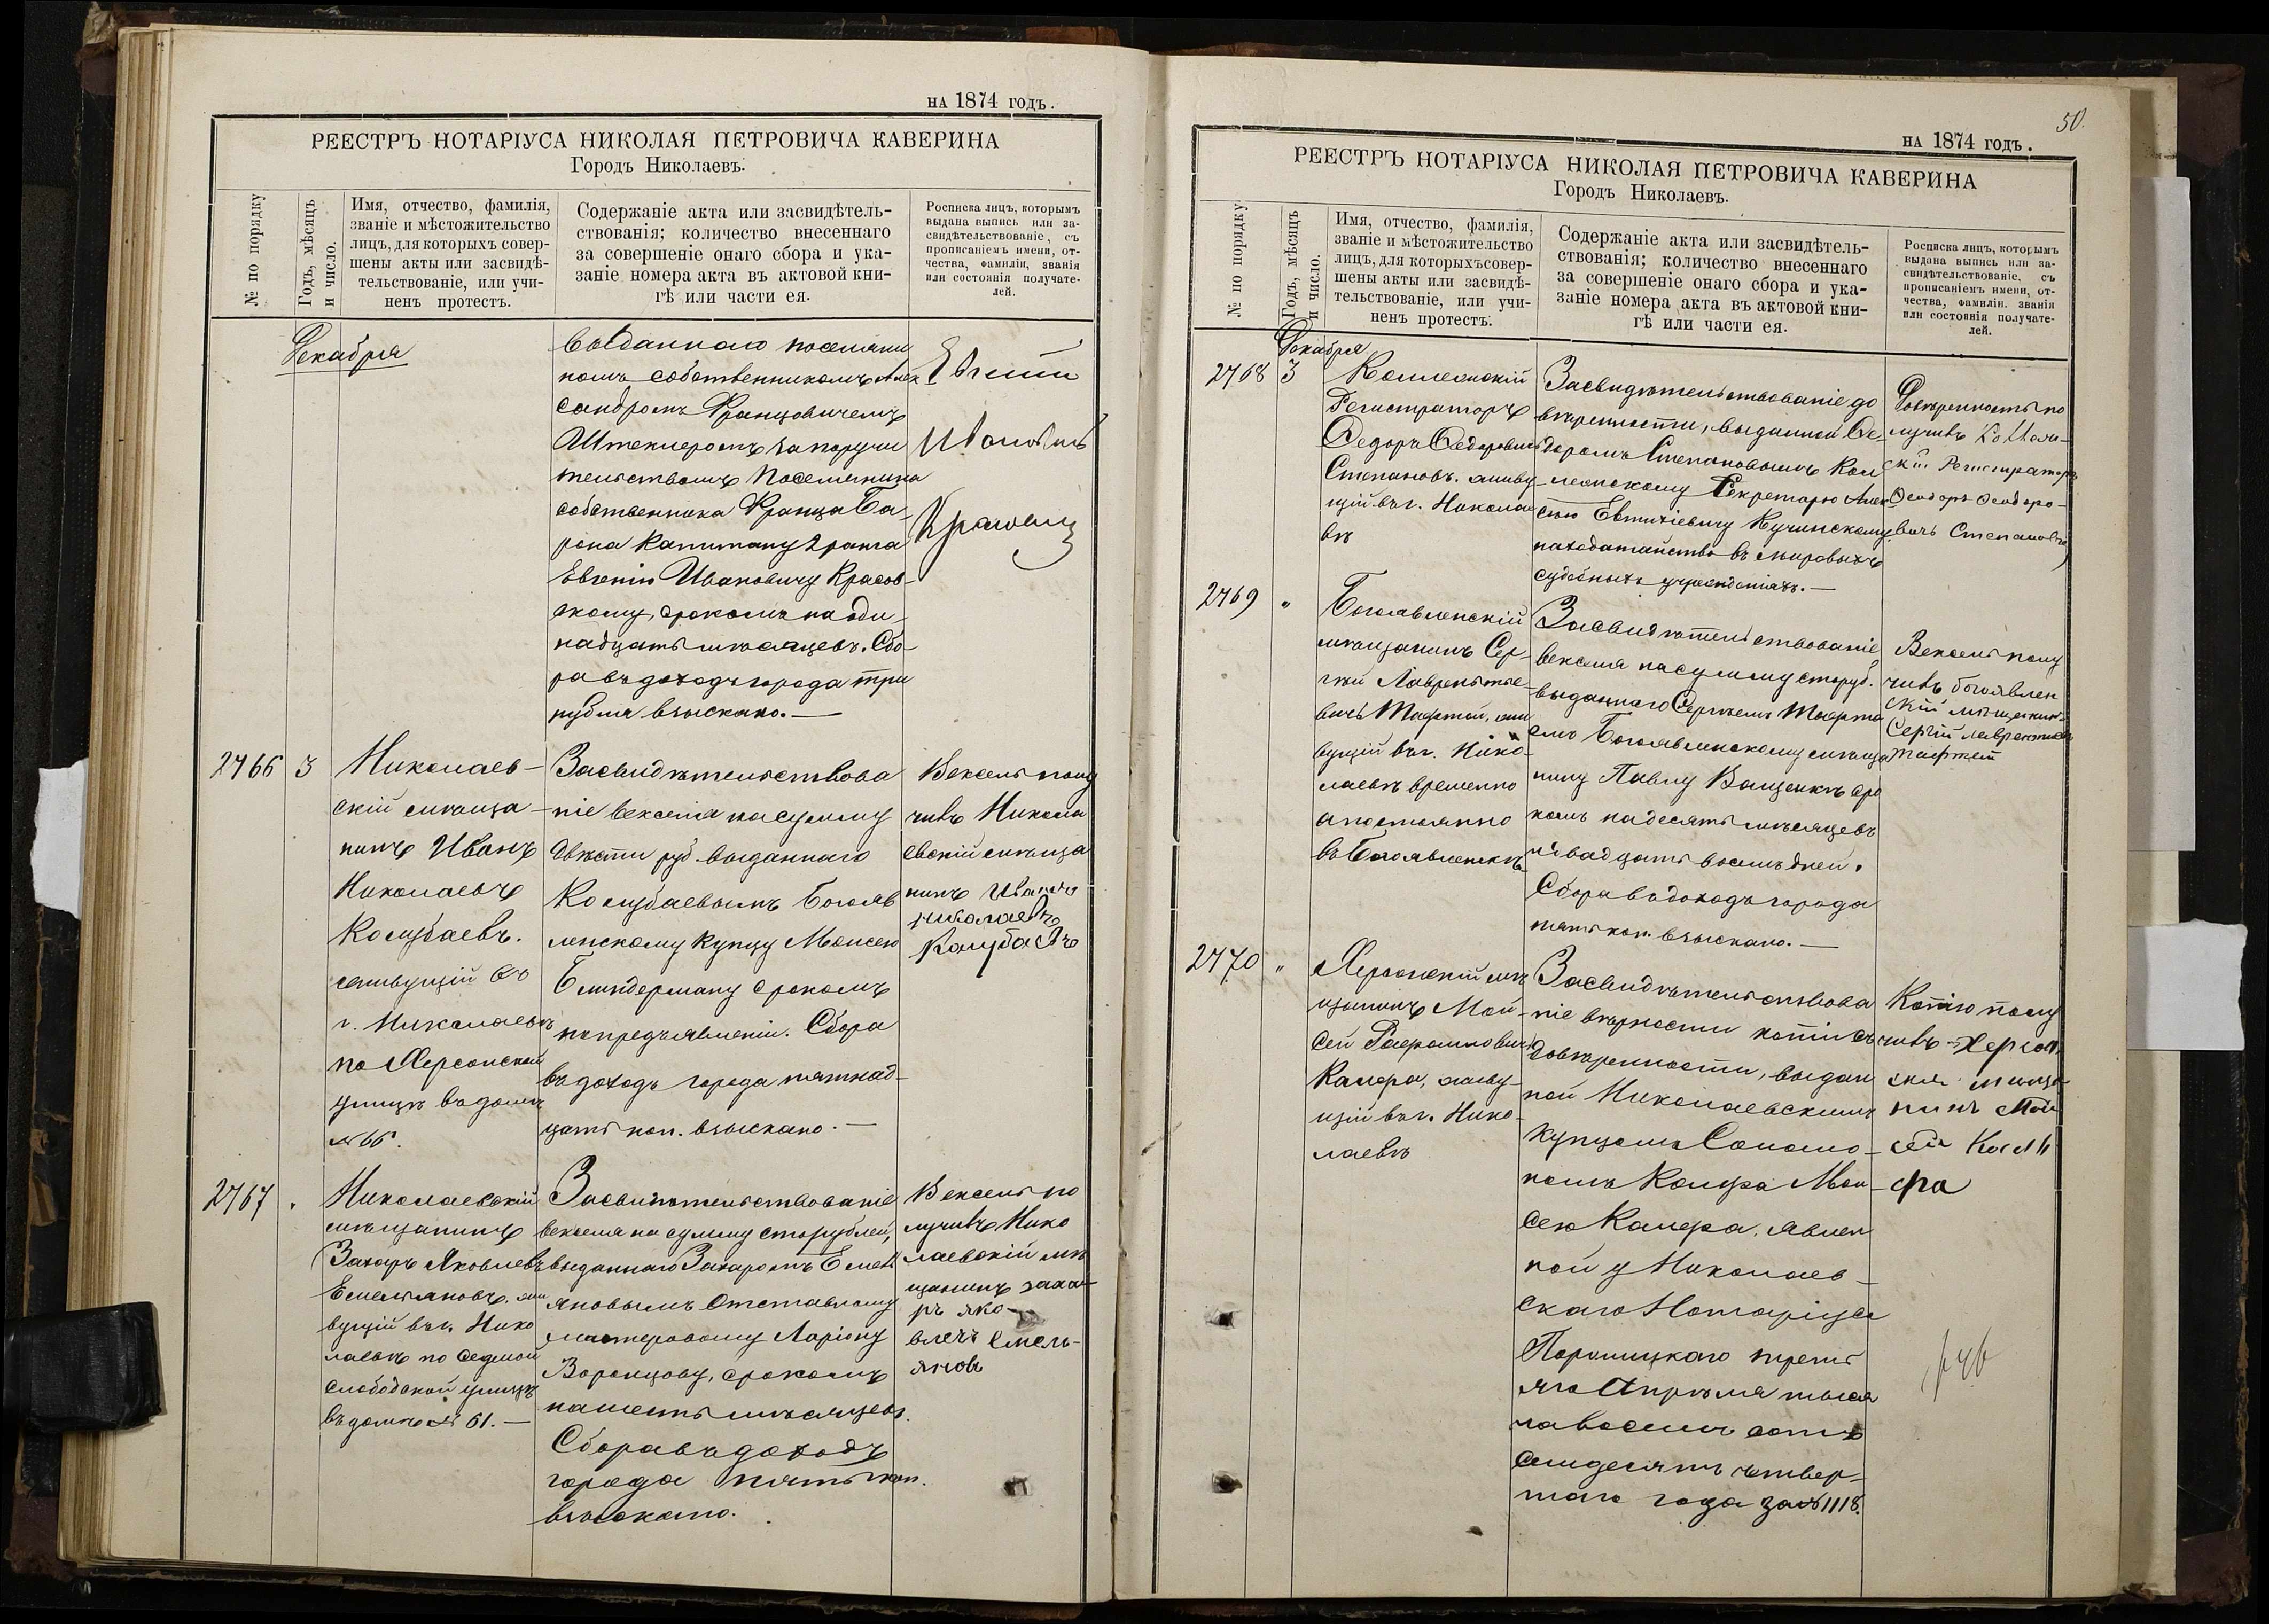 на 1874 годъ.
РЕЕСТРЪ НОТАРІУСА НИКОЛАЯ ПЕТРОВИЧА КАВЕРИНА
Городъ Николаевъ.
№ по порядку
Годъ, мѣсяцъ
и число.
Имя, отчество, фамилія,
званіе и мѣстожительство
лицъ, для которыхъ совер-
шены акты или засвидѣ-
тельствованіе, или учи-
ненъ протестъ.
Содержаніе акта или засвидѣтель-
ствованія; количество внесеннаго
за совершеніе онаго сбора и ука-
заніе номера акта въ актовой кни-
гѣ или части ея.
Росписка лицъ, которымъ
выдана выпись или за-
свидѣтельствованіе, съ
прописаніемъ имени, от-
чества, фамиліи, званія
или состоянія получате-
лей.
Декабря
выданнаго поселяни
номъ собственникомъ Алек
сандромъ Францовичемъ
Штеклеромъ за поручи
тельствомъ поселянина
собственника Франца Ба-
рона Капитану 2 ранга
Евгенію Ивановичу Красов-
скому, срокомъ на оди-
надцать мѣсяцевъ. Сбо-
ра въ доходъ города три
рубля взыскано.—
Евгеній
Ивановъ
2766
3
Николаев-
скій мѣща-
нинъ Иванъ
Николаевъ
Колубаевъ.
живущій въ
г. Николаевѣ
по Херсонской
улицѣ въ домѣ
№ 66.
Засвидѣтельствова
ніе векселя на сумму
двѣсти руб. выданнаго
Колубаевымъ Богояв
ленскому купцу Моисею
Блиндерману срокомъ
по предъявленіи. Сбора
въ доходъ города пятнад-
цать коп. взыскано.—
Вексель полу
чивъ Никола
евскій мѣща
нинъ Иванъ
николаевъ
Колубаевъ
2767
"
Николаевскій
мѣщанинъ
Захаръ Яковлевъ
Емельяновъ, жи
вущій въ г. Нико
лаевѣ по Седмой
Слободской улицѣ
въ домѣ № 61.—
Засвидѣтельствованіе
векселя на сумму сто рублей,
выданнаго Захаромъ Емель
яновымъ Отставному
мастеровому Ларіону
Воронцову, срокомъ
на шесть мѣсяцевъ.
Сбора въ доходъ
города пять коп.
взыскано.
Вексель по
лучивъ Нико
лаевскій мѣ
щанинъ заха-
ръ яко-
влевъ Емель-
яновъ
50.
на 1874 годъ.
РЕЕСТРЪ НОТАРІУСА НИКОЛАЯ ПЕТРОВИЧА КАВЕРИНА
Городъ Николаевъ.
№ по порядку
Годъ, мѣсяцъ
и число.
Имя, отчество, фамилія,
званіе и мѣстожительство
лицъ, для которыхъ совер-
шены акты или засвидѣ-
тельствованіе, или учи-
ненъ протестъ.
Содержаніе акта или засвидѣтель-
ствованія; количество внесеннаго
за совершеніе онаго сбора и ука-
заніе номера акта въ актовой кни-
гѣ или части ея.
Росписка лицъ, которымъ
выдана выпись или за-
свидѣтельствованіе, съ
прописаніемъ имени, от-
чества, фамиліи, званія
или состоянія получате-
лей.
Декабря
2768
3
Коллежскій
Регистраторъ
Федоръ Федоровичъ
Степановъ. живу
щій въ г. Никола
вѣ
Засвидѣтельствованіе до
вѣренности, выданной Фе-
доромъ Степановымъ Кол
лежскому Секретарю Алек
сѣю Евтихіевичу Кучинскому
на ходатайство въ мировыхъ
судебныхъ учрежденіяхъ.—
Довѣренность по
лучивъ Коллеж-
скій Регистраторъ
Феодоръ Феодоро-
вичъ Степановъ
2769
"
Богоявленскій
мѣщанинъ Сер-
гѣй Лаврентье-
вичъ Тафтай, жи
вущій въ г. Нико-
лаевѣ временно
а постоянно
въ Богоявленскѣ
Засвидѣтельствованіе
векселя на сумму сто руб.
выданнаго Сергѣемъ Тафта
емъ Богоявленскому мѣща
нину Павлу Ващенкѣ сро
комъ на десять мѣсяцевъ
и двадцать восемь дней.
Сбора въ доходъ города
пять коп. взыскано.—
Вексель полу
чивъ богоявлен
скій мѣщанинъ
Сергій лаврентіевъ
Тафтай
2770
"
Херсонскій мѣ
щанинъ Мой-
сей Рафаиловичъ
Калфа, живу-
щій въ г. Нико-
лаевѣ
Засвидѣтельствова
ніе вѣрности копіи съ
довѣренности, выдан
ной Николаевскимъ
купцомъ Соломо-
номъ Калфа Мои-
сею Калфа, явлен
ной у Николаев-
скаго Нотаріуса
третья
го Апрѣля тыся
ча восемь сотъ
семдесятъ четвер-
таго года за № 1118.
Копію полу
чивъ Херсон
скій мѣща-
нинъ Мой
сей Кал
фа